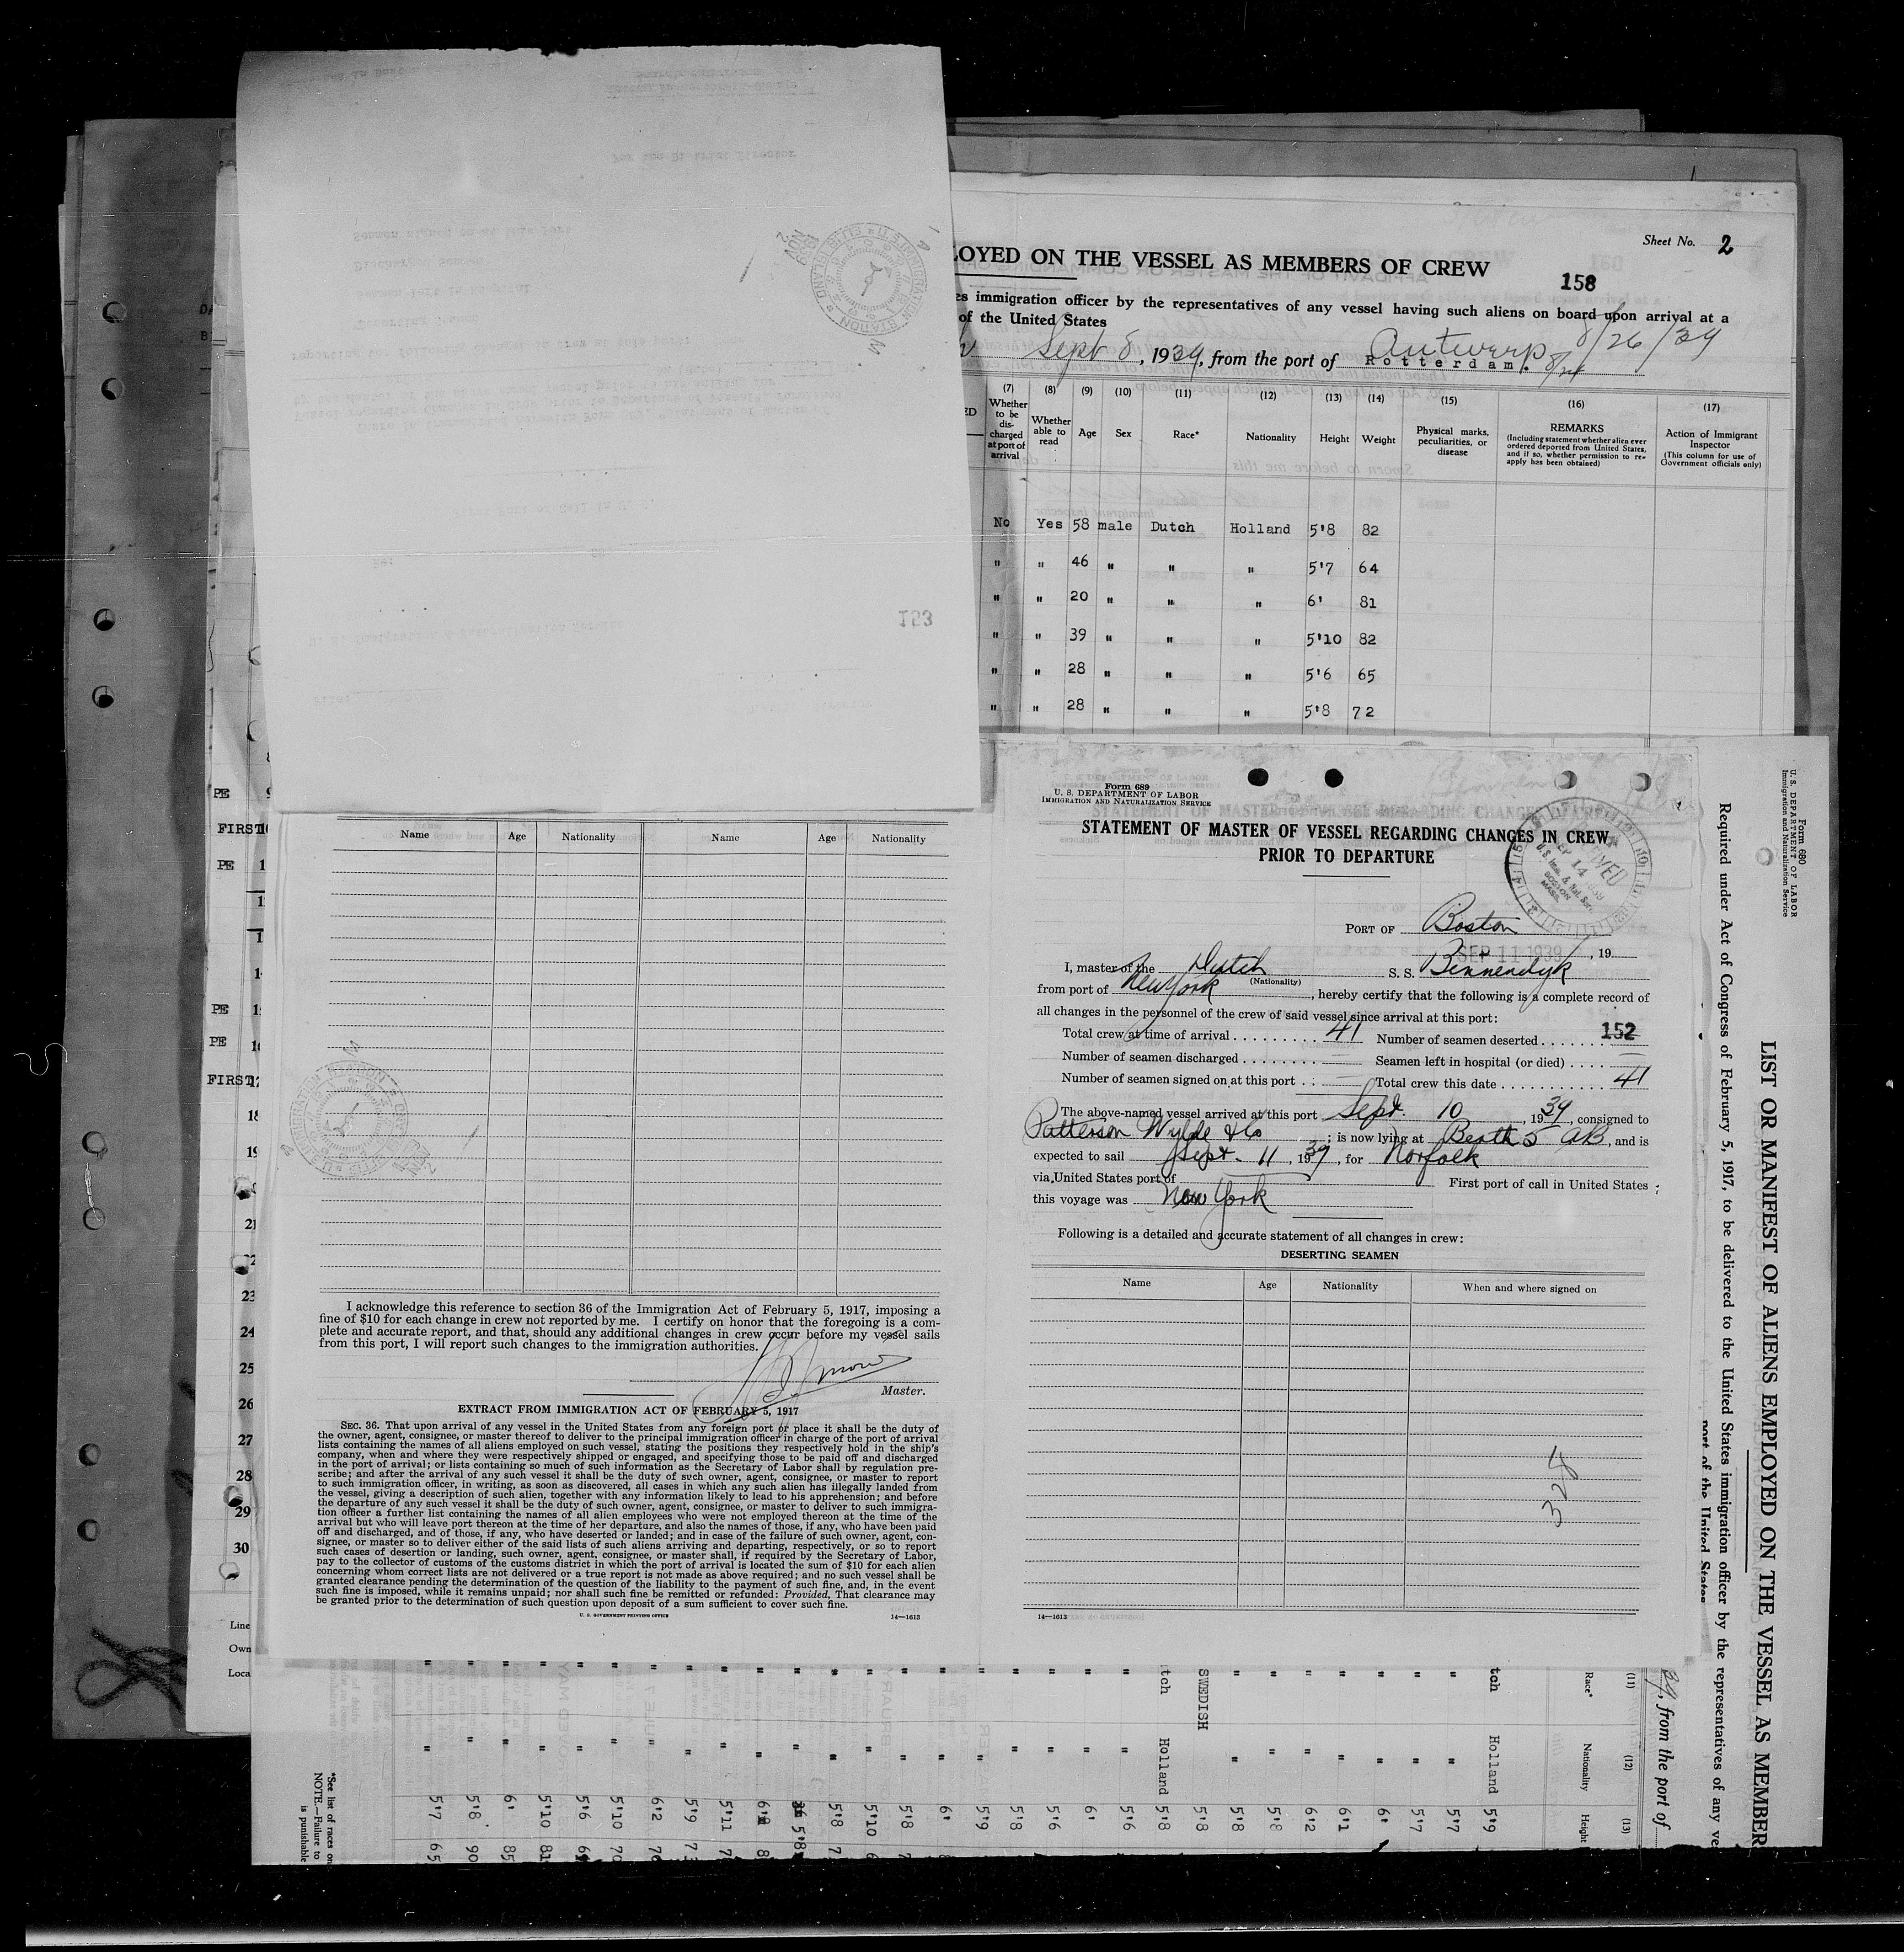 Sheet No. 2
LOYED ON THE VESSEL AS MEMBERS OF CREW
158
es immigration officer by the representatives of any vessel having such aliens on board upon arrival at a
of the United States
Sept 8, 1939, from the port of Antwerp 8/26/39
Rotterdam.
(7) (8) (9) (10) (11) (12) (13) (14) (15) (16) (17)
Whether to be dis-charged at port of arrival
Whether able to read
Age
Sex
Race*
Nationality
Height
Weight
Physical marks, peculiarities, or disease
REMARKS
(Including statement whether alien ever ordered deported from United States, and if so, whether permission to re-apply has been obtained)
Action of Immigrant Inspector
(This column for use of Government officials only)
No Yes 58 male Dutch Holland 5'8 82
" " 46 " " " 5'7 64
" " 20 " " " 6' 81
" " 39 " " " 5'10 82
" " 28 " " " 5'6 65
" " 28 " " " 5'8 72
153
PE
FIRST
PE 1
PE
PE
FIRST
18
19
21
23
24
25
26
27
28
29
30
Line
Own
Loca
Name Age Nationality Name Age Nationality
I acknowledge this reference to section 36 of the Immigration Act of February 5, 1917, imposing a
fine of $10 for each change in crew not reported by me. I certify on honor that the foregoing is a com-
plete and accurate report, and that, should any additional changes in crew occur before my vessel sails
from this port, I will report such changes to the immigration authorities.
Master.
EXTRACT FROM IMMIGRATION ACT OF FEBRUARY 5, 1917
SEC. 36. That upon arrival of any vessel in the United States from any foreign port or place it shall be the duty of
the owner, agent, consignee, or master thereof to deliver to the principal immigration officer in charge of the port of arrival
lists containing the names of all aliens employed on such vessel, stating the positions they respectively hold in the ship's
company, when and where they were respectively shipped or engaged, and specifying those to be paid off and discharged
in the port of arrival; or lists containing so much of such information as the Secretary of Labor shall by regulation pre-
scribe; and after the arrival of any such vessel it shall be the duty of such owner, agent, consignee, or master to report
to such immigration officer, in writing, as soon as discovered, all cases in which any such alien has illegally landed from
the vessel, giving a description of such alien, together with any information likely to lead to his apprehension; and before
the departure of any such vessel it shall be the duty of such owner, agent, consignee, or master to deliver to such immigra-
tion officer a further list containing the names of all alien employees who were not employed thereon at the time of the
arrival but who will leave port thereon at the time of her departure, and also the names of those, if any, who have been paid
off and discharged, and of those, if any, who have deserted or landed; and in case of the failure of such owner, agent, con-
signee, or master so to deliver either of the said lists of such aliens arriving and departing, respectively, or so to report
such cases of desertion or landing, such owner, agent, consignee, or master shall, if required by the Secretary of Labor,
pay to the collector of customs of the customs district in which the port of arrival is located the sum of $10 for each alien
concerning whom correct lists are not delivered or a true report is not made as above required; and no such vessel shall be
granted clearance pending the determination of the question of the liability to the payment of such fine, and, in the event
such fine is imposed, while it remains unpaid; nor shall such fine be remitted or refunded: Provided, That clearance may
be granted prior to the determination of such question upon deposit of a sum sufficient to cover such fine.
U. S. GOVERNMENT PRINTING OFFICE 14—1613
Form 689
U. S. DEPARTMENT OF LABOR
IMMIGRATION AND NATURALIZATION SERVICE
STATEMENT OF MASTER OF VESSEL REGARDING CHANGES IN CREW
PRIOR TO DEPARTURE
PORT OF Boston
SEP 11 1939, 19
I, master of the Dutch S. S. Binnendyk
(Nationality)
from port of New York, hereby certify that the following is a complete record of
all changes in the personnel of the crew of said vessel since arrival at this port:
Total crew at time of arrival 41 Number of seamen deserted 152
Number of seamen discharged Seamen left in hospital (or died)
Number of seamen signed on at this port Total crew this date 41
The above-named vessel arrived at this port Sept. 10, 1939, consigned to
Patterson Wylde & Co; is now lying at Berth 5 AB, and is
expected to sail Sept. 11, 1939, for Norfolk
via United States port of First port of call in United States
this voyage was New York
Following is a detailed and accurate statement of all changes in crew:
DESERTING SEAMEN
Name Age Nationality When and where signed on
324
14—1613
Form 680
U. S. DEPARTMENT OF LABOR
Immigration and Naturalization Service
LIST OR MANIFEST OF ALIENS EMPLOYED ON THE VESSEL AS MEMBER
Required under Act of Congress of February 5, 1917, to be delivered to the United States immigration officer by the representatives of any ve
port of the United States
39, from the port of
(11) (12) (13)
Race* Nationality Height
tch Holland 5'9
" " 5'7
" " 5'7
" " 6'
" " 6'1
" " 6'2
" " 5'8
" " 5'8
SWEDISH 5'8
tch Holland 5'8
" " 5'6
" " 6'
" " 5'6
" " 5'8
" " 5'9
" " 6'
" " 5'8
" " 5'10
" " 5'8
" " 5'8
" " 5'11
" " 5'9
" " 6'2
" " 5'10
" " 5'6
" " 5'10 81
" " 6' 85
" " 5'8 90
" " 5'7 65
*See list of races on
NOTE.—Failure to
is punishable